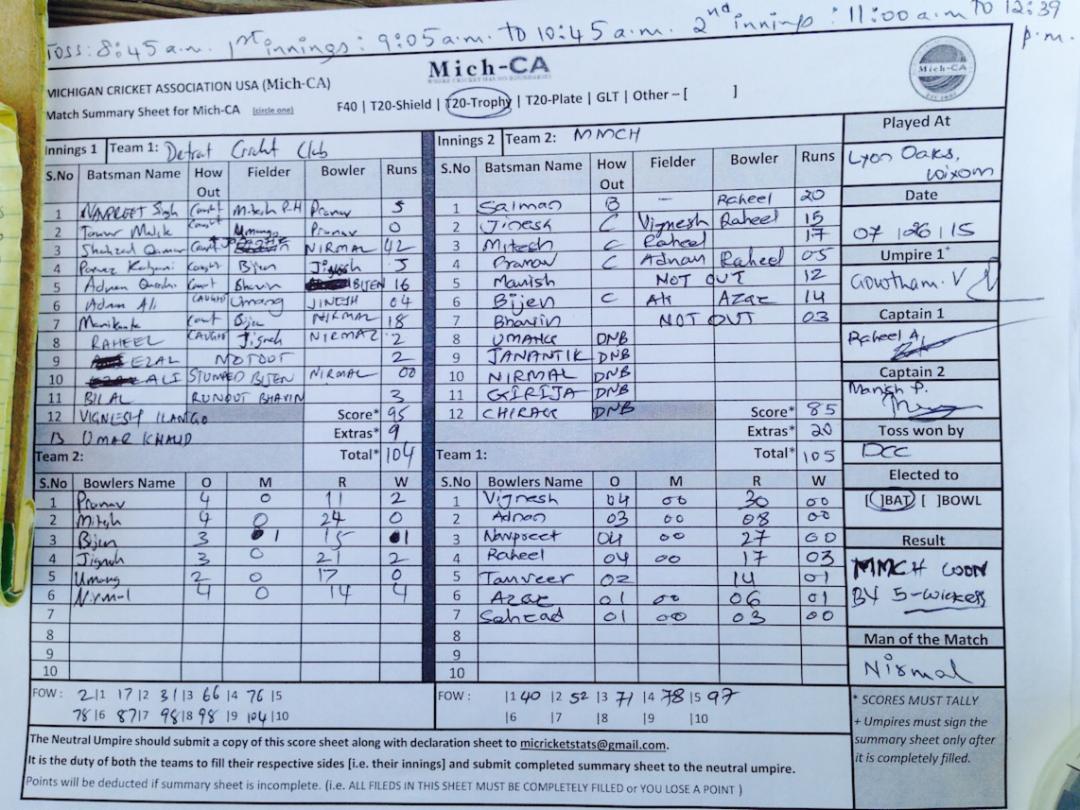 Toss: 8:45 a.m. 1st innings: 9:05 a.m. TO 10:45 a.m. 2nd innings: 11:00 a.m TO 12:39 p.m.
Mich-CA
MICHIGAN CRICKET ASSOCIATION USA (Mich-CA)
Match Summary Sheet for Mich-CA (circle one) F40 | T20-Shield | T20-Trophy | T20-Plate | GLT | Other – [ ]
Mich-CA
Innings 1 Team 1: Detroit Cricket Club
S.No Batsman Name How Out Fielder Bowler Runs
1 NAVPREET Singh Caught Mitesh P.H Pranav 5
2 Malik Caught Umang Pranav 0
3 Shahzad NIRMAL 42
4 Parvez Kalyani Caught Bijen Jignesh 5
5 Adnan Caught Bhavin BIJEN 16
6 Adnan Ali CAUGHT Umang JINESH 04
7 Manikanta Caught Bijen NIRMAL 18
8 RAHEEL CAUGHT Jignesh NIRMAL 2
9 EZAL NOTOUT 2
10 ALI STUMPED BIJEN NIRMAL 00
11 BILAL RUNOUT BHAVIN 3
12 VIGNESH ILANGO Score* 95
13 UMAR KHALID Extras* 9
Total* 104
Innings 2 Team 2: MMCH
S.No Batsman Name How Out Fielder Bowler Runs
1 Salman B – Raheel 20
2 Jinesh C Vignesh Raheel 15
3 Mitesh C Raheel 17
4 Pranav C Adnan Raheel 05
5 Manish NOT OUT 12
6 Bijen C Ali Azaz 14
7 Bhavin NOT OUT 03
8 UMANG DNB
9 JANANTIK DNB
10 NIRMAL DNB
11 GIRIJA DNB
12 CHIRAG DNB Score* 85
Extras* 20
Total* 105
Team 2:
S.No Bowlers Name O M R W
1 Pranav 4 0 11 2
2 Mitesh 4 0 24 0
3 Bijen 3 1 15 1
4 Jignesh 3 0 21 2
5 Umang 2 0 17 0
6 Nirmal 4 0 14 4
7
8
9
10
FOW: 2|1 17|2 31|3 66|4 76|5
78|6 87|7 98|8 98|9 104|10
Team 1:
S.No Bowlers Name O M R W
1 Vignesh 04 00 30 00
2 Adnan 03 00 08 00
3 Navpreet 04 00 27 00
4 Raheel 04 00 17 03
5 Tanveer 02 14 01
6 Azaz 01 00 06 01
7 Sahzad 01 00 03 00
8
9
10
FOW: |1 40 |2 52 |3 71 |4 78 |5 97
|6 |7 |8 |9 |10
Played At
Lyon Oaks, Wixom
Date
07/26/15
Umpire 1+
Gowtham. V
Captain 1
Raheel A,
Captain 2
Manish P.
Toss won by
DCC
Elected to
[ ]BAT [ ]BOWL
Result
MMCH WON
BY 5-wickets
Man of the Match
Nirmal
* SCORES MUST TALLY
+ Umpires must sign the
summary sheet only after
it is completely filled.
The Neutral Umpire should submit a copy of this score sheet along with declaration sheet to micricketstats@gmail.com.
It is the duty of both the teams to fill their respective sides [i.e. their innings] and submit completed summary sheet to the neutral umpire.
Points will be deducted if summary sheet is incomplete. (i.e. ALL FILEDS IN THIS SHEET MUST BE COMPLETELY FILLED or YOU LOSE A POINT )